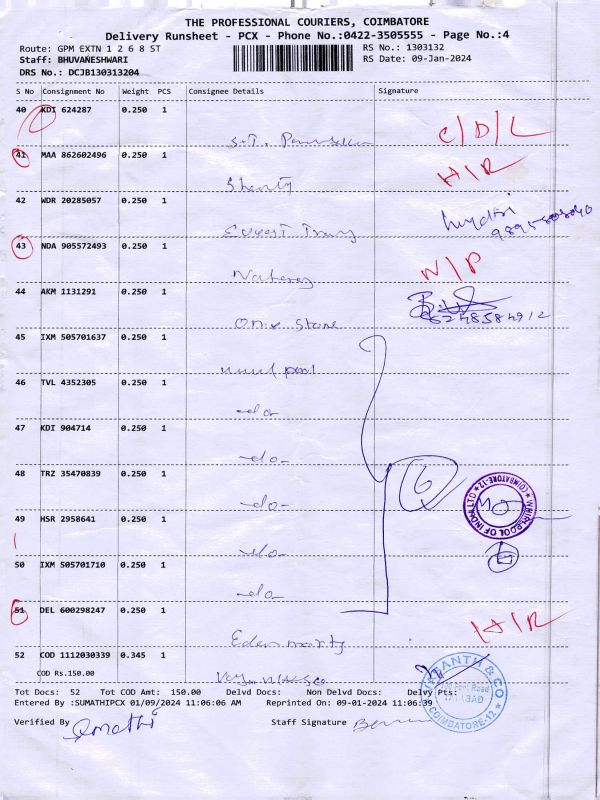 THE PROFESSIONAL COURIERS, COIMBATORE
Delivery Runsheet - PCX - Phone No.:0422-3505555 - Page No.:4
Route: GPM EXTN 1 2 6 8 ST
RS No.: 1303132
Staff: BHUVANESHWARI
RS Date: 09-Jan-2024
DRS No.: DCJB130313204
S No Consignment No Weight PCS Consignee Details Signature
40 KDI 624287 0.250 1
S.T. C/D/L
41 MAA 862602496 0.250 1 H/R
Shenty
42 WDR 20285057 0.250 1
43 NDA 905572493 0.250 1 N/P
44 AKM 1131291 0.250 1
Onix Stone
45 IXM 505701637 0.250 1
46 TVL 4352305 0.250 1
-do-
47 KDI 904714 0.250 1
-do-
48 TRZ 35470839 0.250 1 6
-do-
49 HSR 2958641 0.250 1 WHIRLPOOL OF INDIA LTD * COIMBATORE-12 *
-do-
50 IXM 505701710 0.250 1
-do-
51 DEL 600298247 0.250 1 H/R
52 COD 1112030339 0.345 1
COD Rs.150.00
Tot Docs: 52 Tot COD Amt: 150.00 Delvd Docs: Non Delvd Docs: Delvy Pts:
Entered By :SUMATHIPCX 01/09/2024 11:06:06 AM Reprinted On: 09-01-2024 11:06:39
& CO COIMBATORE-12
Verified By Staff Signature